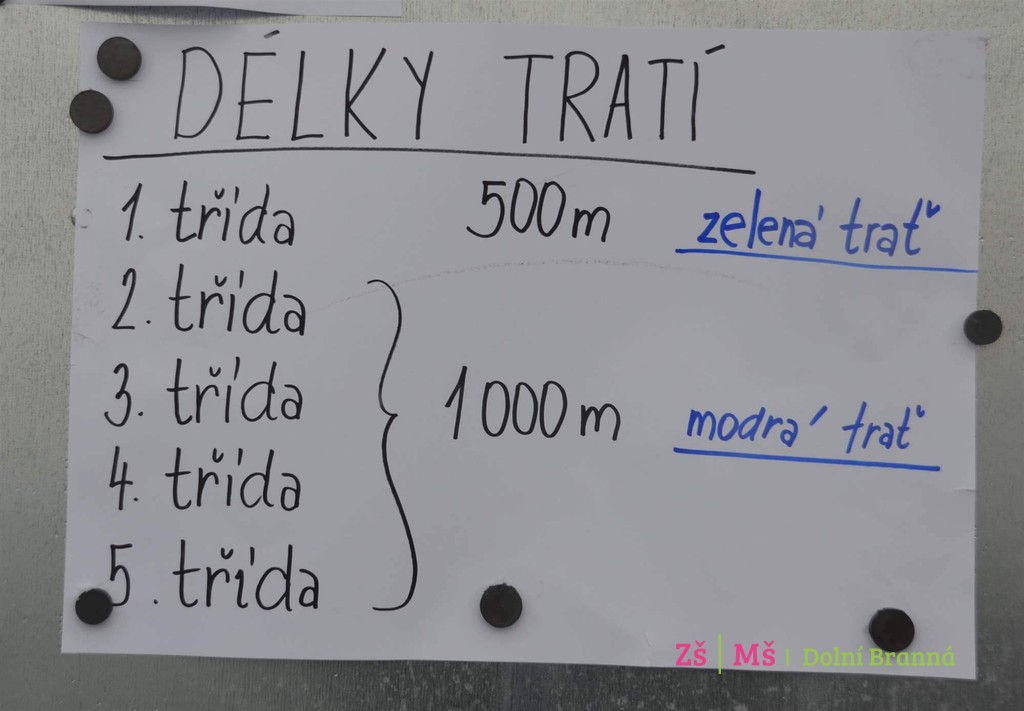 DÉLKY TRATÍ
1. třída 500m zelená trať
2. třída
3. třída
1000m modrá trať
4. třída
5. třída
ZŠ | MŠ | Dolní Branná